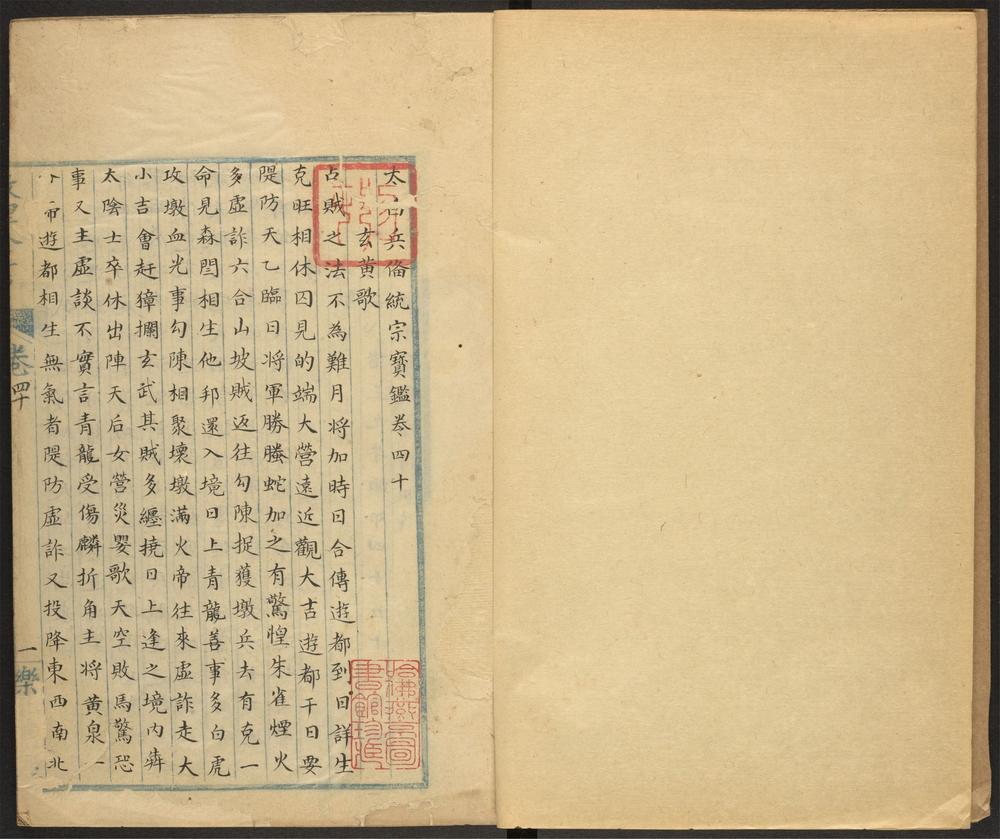 太白兵備統宗寶鑑卷四十
玄黄歌
占賊之法不為難月将加時日合傳遊都到日詳生
克旺相休囚見的端大營遠近觀大吉遊都干日要
隄防天乙臨日将軍勝螣蛇加之有驚惶朱雀煙火
多虛詐六合山坡賊返往勾陳捉獲墩兵去有克一
命見森閆相生他邦還入境日上青龍善事多白虎
攻墩血光事勾陳相聚壞墩滿火帝往來虛詐走大
小吉會赶獐攔玄武其賊多纏撓日上逢之境内犇
太陰士卒休出陣天后女營災嬰歌天空敗馬驚恐
事又主虛談不實言青龍受傷麟折角主将黄泉一
帝遊都相生無氣者隄防虛詐又投降東西南北
卷四十
一
樂
哈佛燕京圖書館珍藏